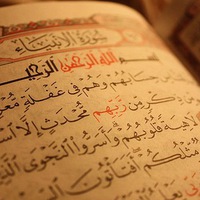 سُورَةُ الْأَنْبِيَاءِ
بِسْمِ اللَّهِ الرَّحْمٰنِ الرَّحِيمِ
حِسَابُهُمْ وَهُمْ فِي غَفْلَةٍ
مِنْ ذِكْرٍ مِنْ رَبِّهِمْ مُحْدَثٍ إِلَّا
لَاهِيَةً قُلُوبُهُمْ وَأَسَرُّوا النَّجْوَى الَّذِينَ
مِثْلُكُمْ أَفَتَأْتُونَ